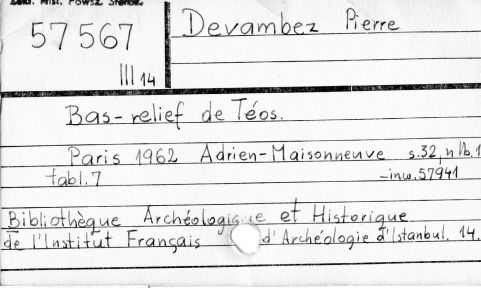 57 567
III 14
Devambez Pierre
Bas-relief de Téos.
Paris 1962 Adrien-Maisonneuve s.32, nlb.1
tabl.7 -inw.57941
Bibliothèque Archéologique et Historique
de l'Institut Français d'Archéologie d'Istanbul. 14.